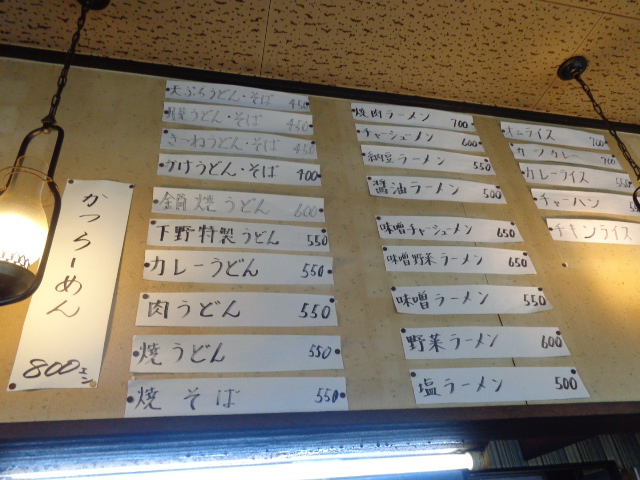 かつらーめん
800エン
天ぷらうどん・そば 450
うどん・そば 450
きつねうどん・そば 450
かけうどん・そば 400
鍋焼うどん 600
下野特製うどん 550
カレーうどん 550
肉うどん 550
焼うどん 550
焼そば 550
焼肉ラーメン 700
チャーシューメン 600
納豆ラーメン 550
醤油ラーメン 500
味噌チャーシューメン 650
味噌野菜ラーメン 650
味噌ラーメン 550
野菜ラーメン 600
塩ラーメン 500
オムライス 700
カツカレー 700
カレーライス 550
チャーハン
チキンライス